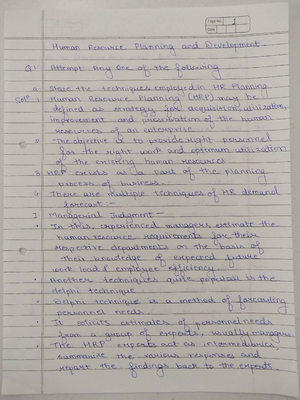 Page No. 1
Date
Human Resource Planning and Development
Q1 Attempt Any one of the following
a. State the techniques employed in HR Planning.
Soln 1 Human Resource Planning (HRP) may be
defined as strategy for acquisition, utilization,
improvement and preservation of the human
resources of an enterprise.
2 The objective is to provide right personnel
for the right work and optimum utilization
of the existing human resources
3 HRP exists as a part of the planning
process of business.
4 There are multiple techniques of HR demand
forecast :-
I. Managerial Judgment -
• In this, experienced managers estimate the
human resource requirements for their
respective departments on the basis of
their knowledge of expected future
work load & employee efficiency.
• Another techniques quite popular is the
delphi technique.
• Delphi technique is a method of forecasting
personnel needs.
• It solicits estimates of personnel needs
from a group of experts, usually managers
• The HRP experts act as intermediaries,
summarise the various responses and
report the findings back to the experts.